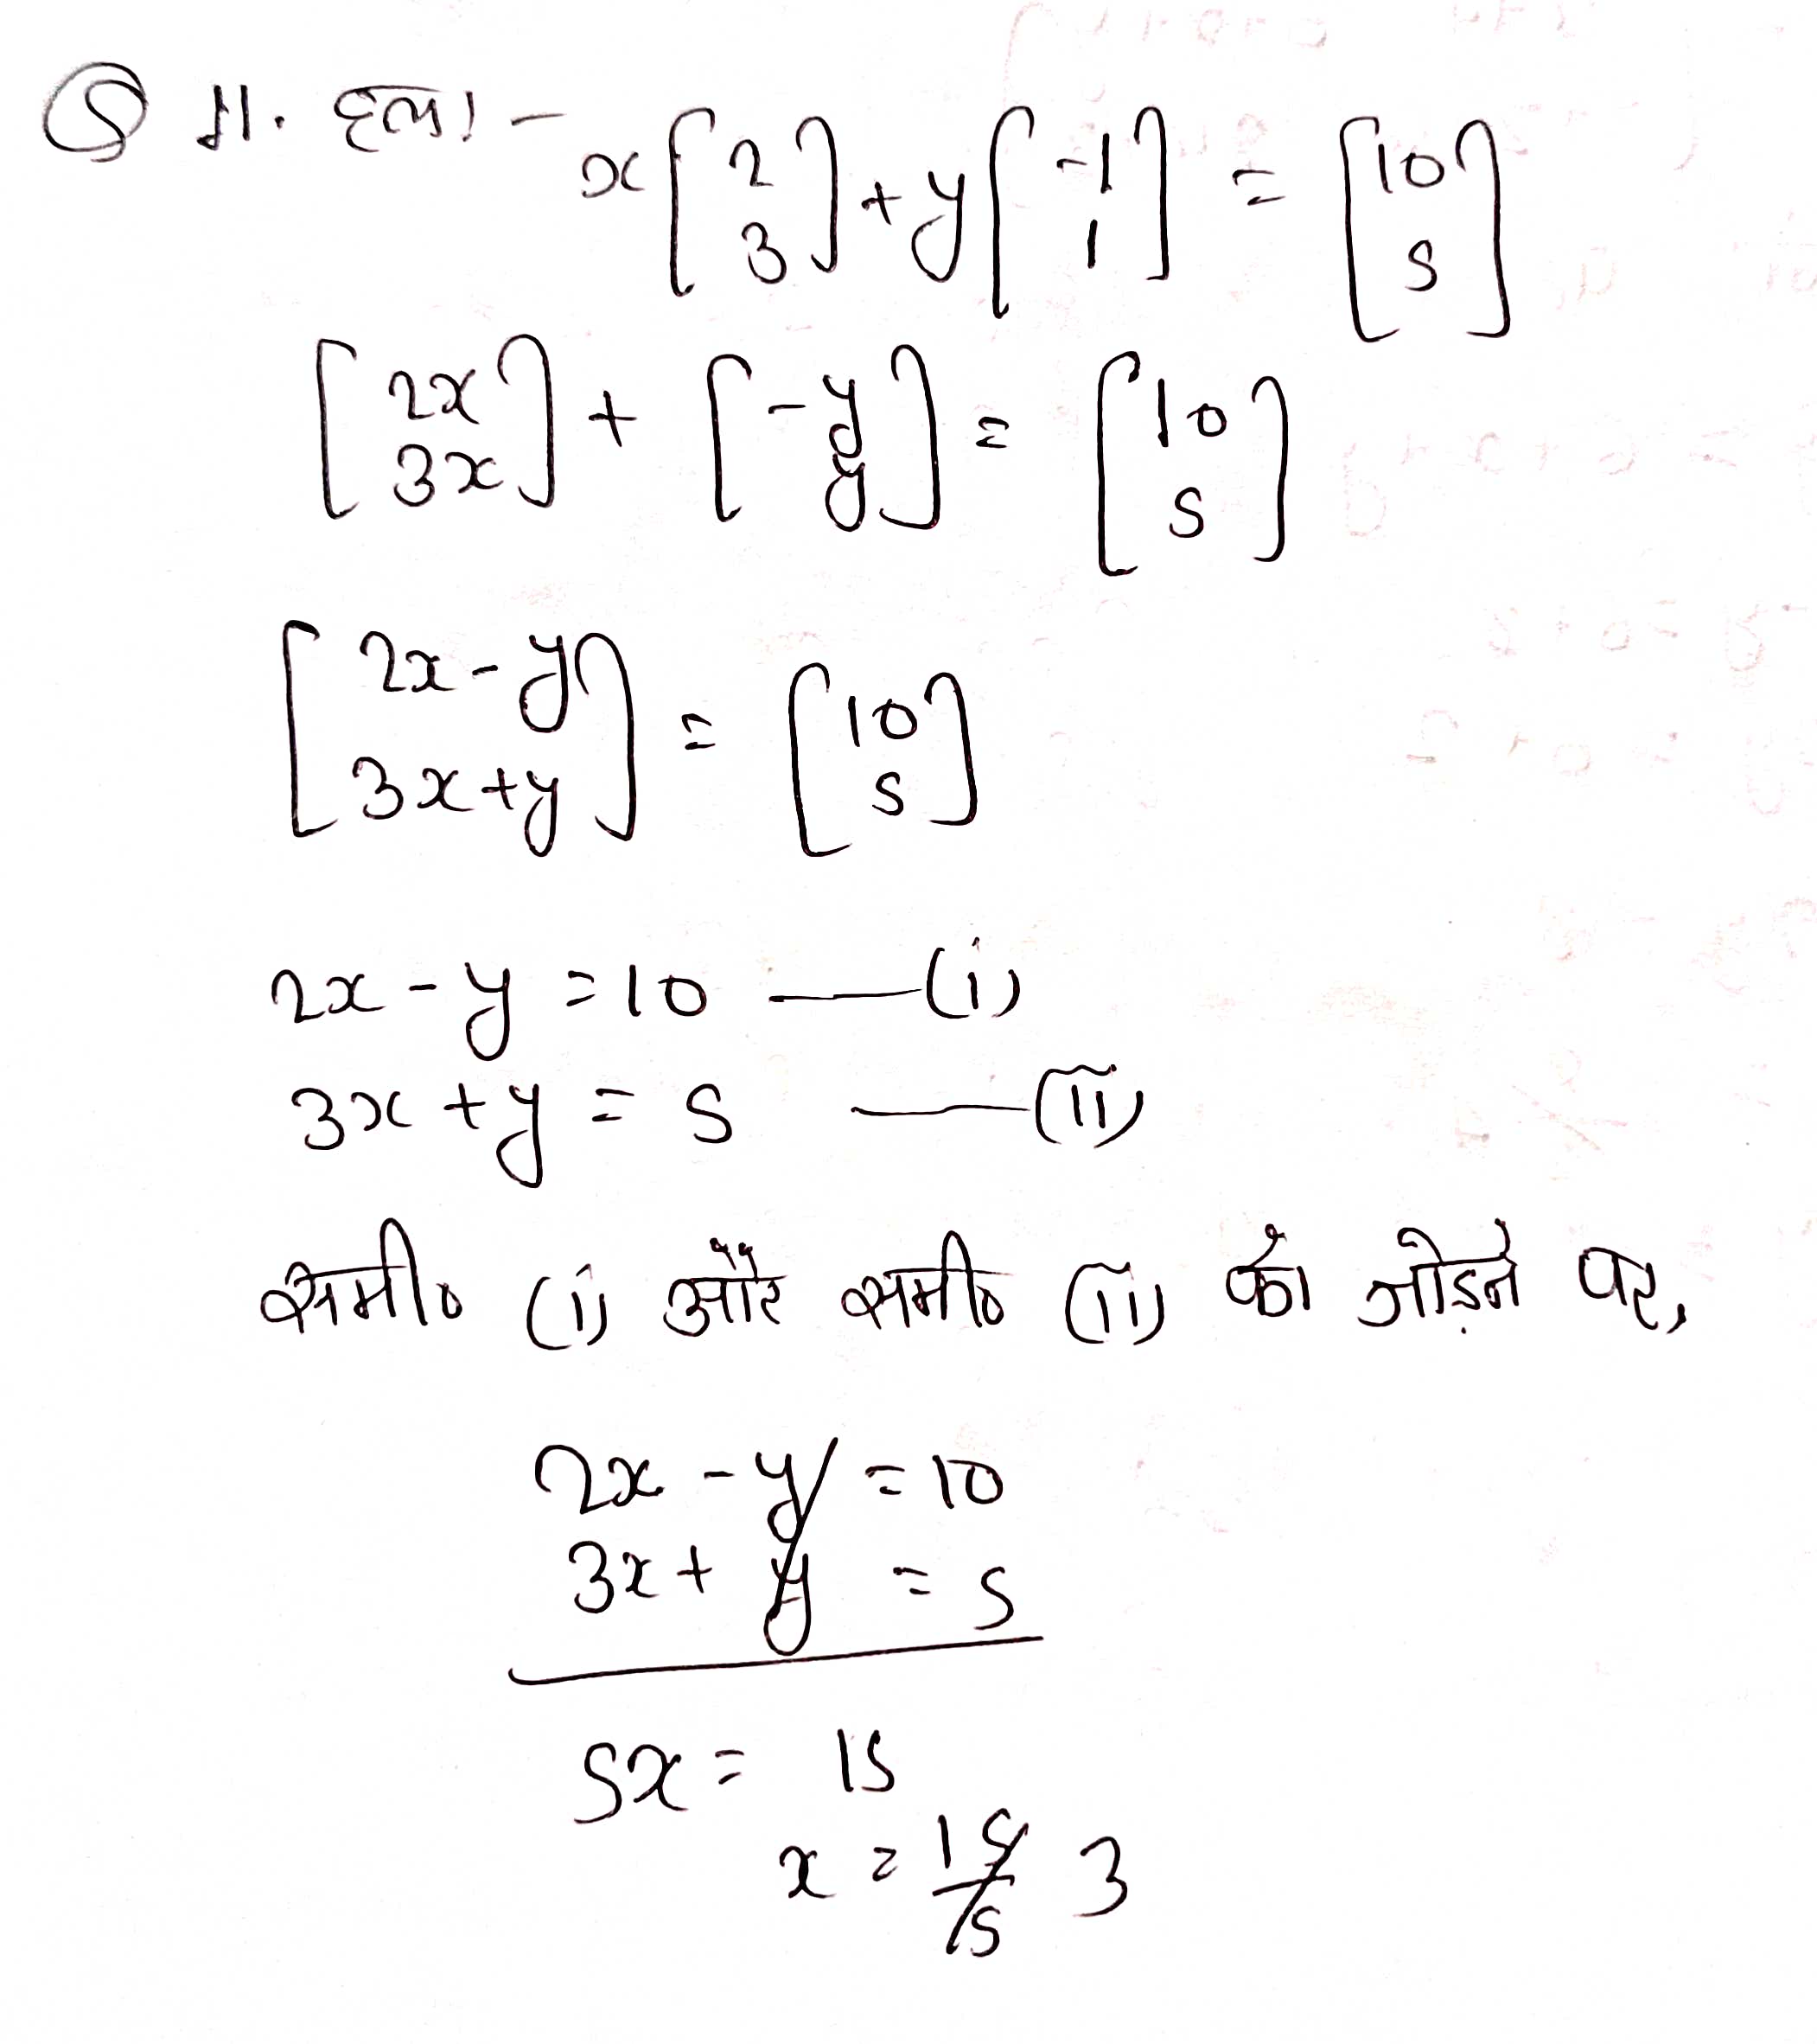 Q 11. हल:-
x[2 3] + y[-1 1] = [10 5]
[2x 3x] + [-y y] = [10 5]
[2x-y 3x+y] = [10 5]
2x - y = 10 —(i)
3x + y = 5 —(ii)
समी० (i) और समी० (ii) को जोड़ने पर,
2x - y = 10
3x + y = 5
5x = 15
x = 15/5 3